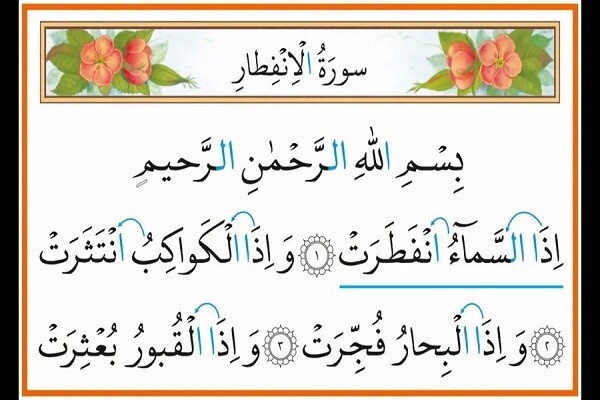 سورَةُ الْاِنْفِطارِ
بِسْمِ اللهِ الرَّحْمٰنِ الرَّحيمِ
اِذَا السَّمآءُ انْفَطَرَتْ ﴿١﴾ وَ اِذَا الْكَواكِبُ انْتَثَرَتْ
﴿٢﴾ وَ اِذَا الْبِحارُ فُجِّرَتْ ﴿٣﴾ وَ اِذَا الْقُبورُ بُعْثِرَتْ